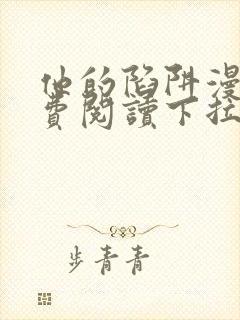 他的陷阱漫
费阅讀下拉
步青青